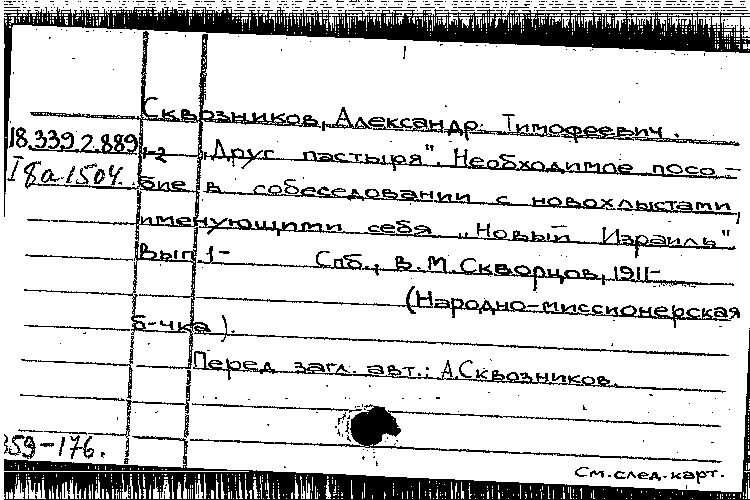 Сквозников, Александр Тимофеевич.
18.339.2.889
1-2 „Друг пастыря". Необходимое посо-
I 8a 1504.
бие в собеседовании с новохлыстами,
именующими себя „Новый Израиль".
Вып 1- Спб., В.М.Скворцов, 1911-
(Народно-миссионерская
б-чка).
Перед загл. авт.: А.Сквозников.
359-176.
См.след.карт.